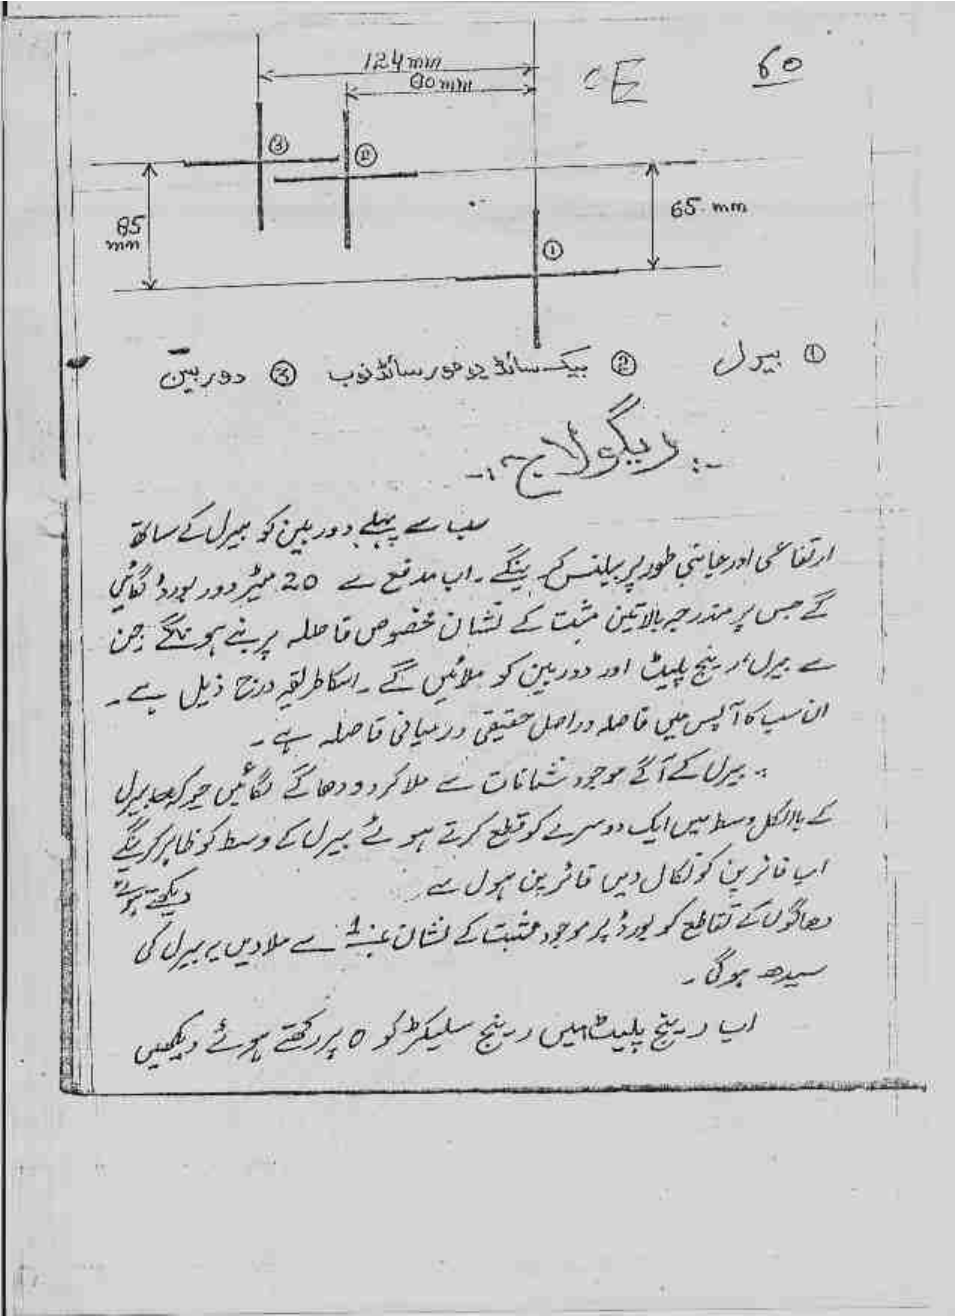 124 mm
80 mm
E
60
③
②
85
mm
65 mm
①
① بیرل ② بیک سائڈ سائڈ نوب ③ دوربین
ریگولاج
سب سے پہلے دوربین کو بیرل کے ساتھ
ارتفاعی اور طور پر بیلنس کرینگے ۔ اب مدفع سے 20 میٹر دور بورڈ لگائیں
گے جس پر مندرجہ بالا تین مثبت کے نشان مخصوص فاصلہ پر بنے ہونگے جن
سے بیرل، رینج پلیٹ اور دوربین کو ملائیں گے ۔ اسکا طریقہ درج ذیل ہے ۔
ان سب کا آپس میں فاصلہ دراصل حقیقی درمیانی فاصلہ ہے ۔
بیرل کے آگے موجود نشانات سے ملا کر دو دھاگے لگائیں جو کہ بیرل
کے بالکل وسط میں ایک دوسرے کو قطع کرتے ہوئے بیرل کے وسط کو ظاہر کرینگے
اب فائرپن کو نکال دیں فائرپن ہول سے دیکھتے ہوئے
دھاگوں کے تقاطع کو بورڈ پر موجود مثبت کے نشان نمبر 1 سے ملا دیں یہ بیرل کی
سیدھ ہوگی ۔
اب رینج پلیٹ میں رینج سلیکٹر کو 0 پر رکھتے ہوئے دیکھیں